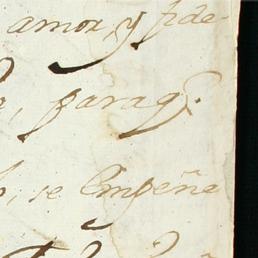 amor, y fide-
, parag.
, se Empeña